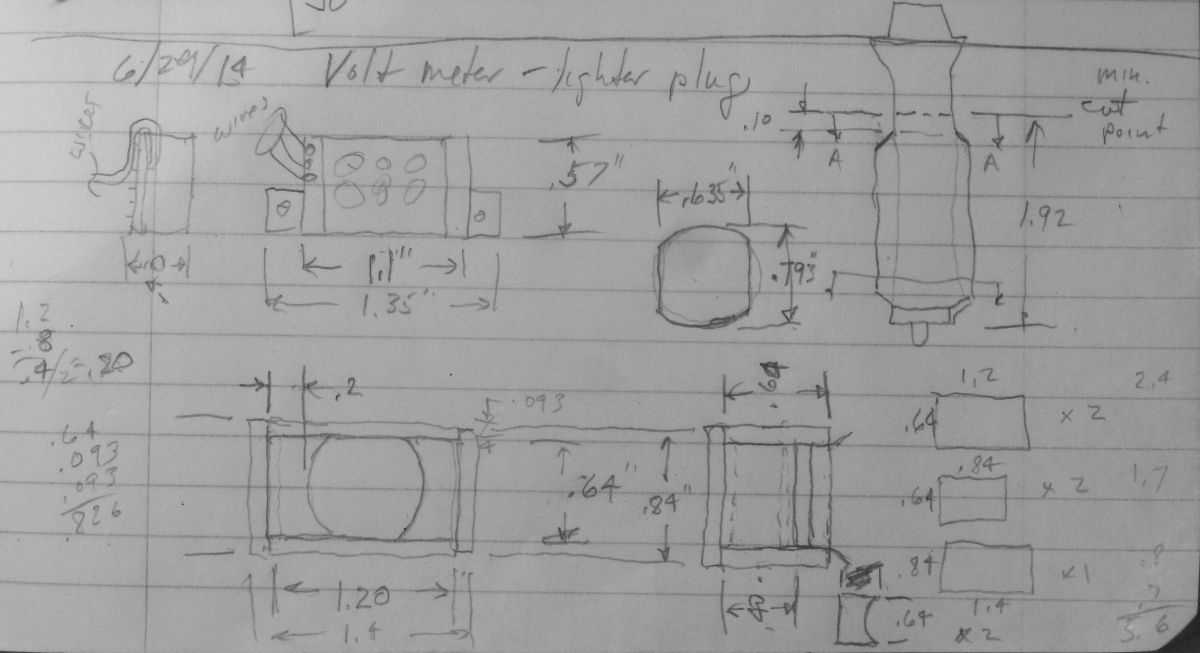 50
6/29/14 Volt meter - lighter plug
min.
cut
point
wires
wires
.10
A
A
.57"
.635"
.793"
1.92
1.1"
1.35"
1.2
-.8
.4/2=.20
.2
.093
.64
1.2
2.4
.64
x 2
.64
.093
.093
.826
.64"
.84"
.84
.64
x 2
1.7
.84
x1
.8
1.20
1.4
.64
1.4
x 2
.7
5.6